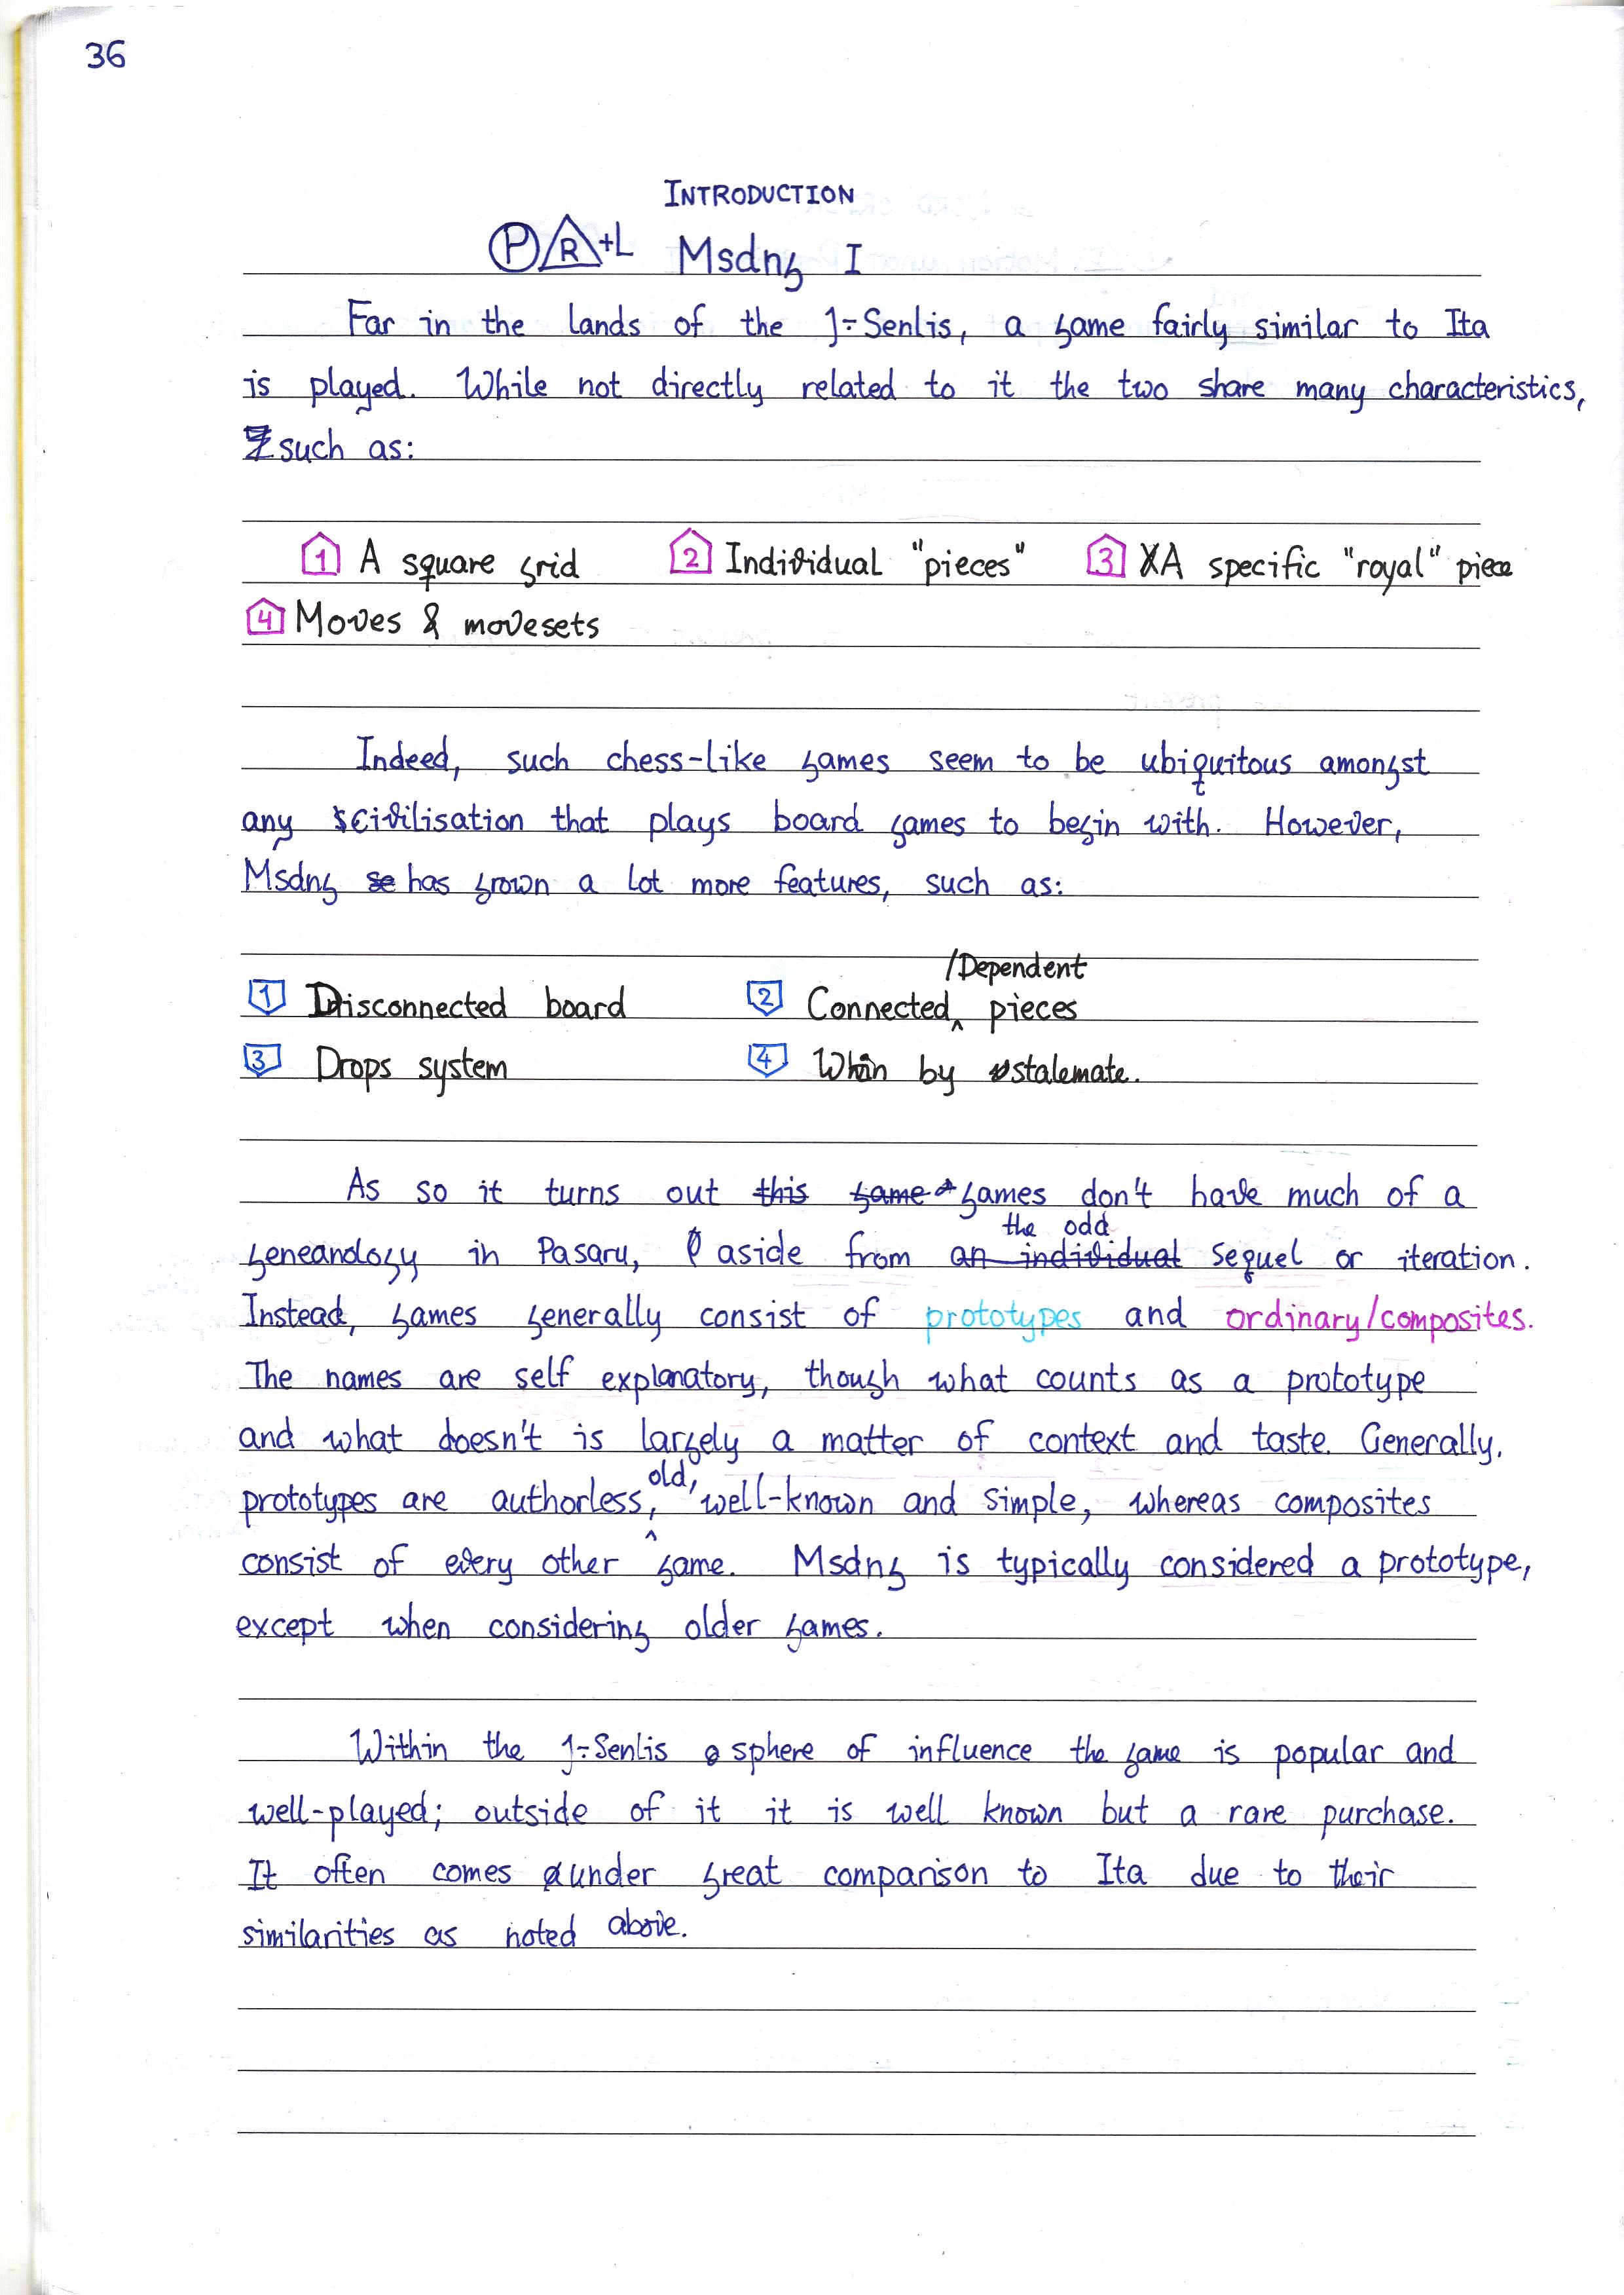 36
INTRODUCTION
P R +L Msdng I
Far in the lands of the 1÷Senlis, a game fairly similar to Ita
is played. While not directly related to it the two share many characteristics,
such as:
1 A square grid 2 Individual "pieces" 3 A specific "royal" piece
4 Moves & movesets
Indeed, such chess-like games seem to be ubiquitous amongst
any civilisation that plays board games to begin with. However,
Msdng has grown a lot more features, such as:
/Dependent
1 Disconnected board 2 Connected pieces
3 Drops system 4 Win by stalemate.
As so it turns out this game games don't have much of a
the odd
geneandogy in Pasaru, aside from an individual sequel or iteration.
Instead, games generally consist of prototypes and ordinary/composites.
The names are self explanatory, though what counts as a prototype
and what doesn't is largely a matter of context and taste. Generally,
old,
prototypes are authorless, well-known and simple, whereas composites
consist of every other game. Msdng is typically considered a prototype,
except when considering older games.
Within the 1÷Senlis sphere of influence the game is popular and
well-played; outside of it it is well known but a rare purchase.
It often comes under great comparison to Ita due to their
similarities as noted above.